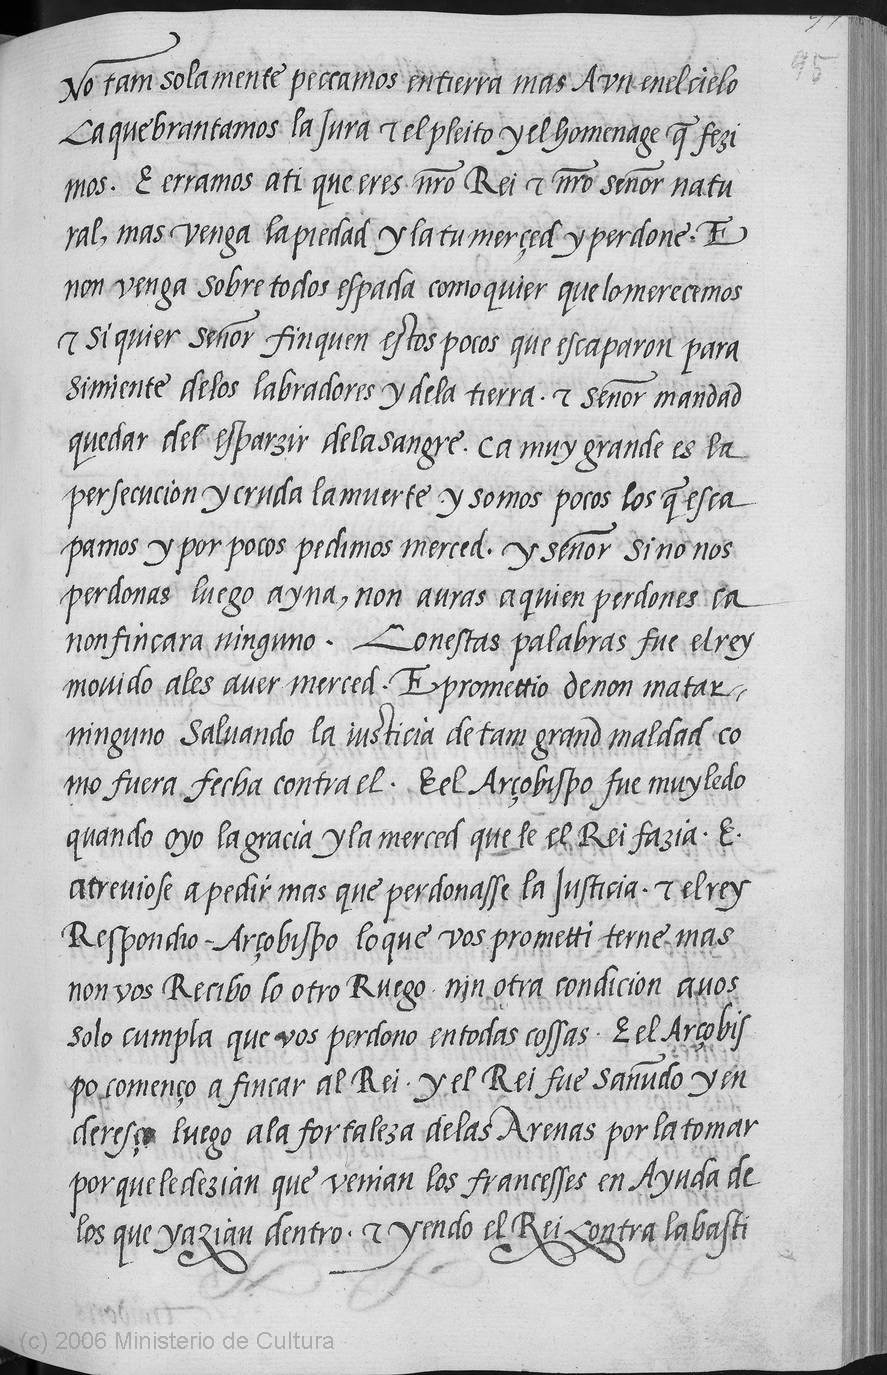 95
No tam solamente peccamos en tierra mas Avn enel cielo
Ca quebrantamos la Jura ⁊ el pleito y el homenage q̃ fezi
mos. E erramos a ti que eres nr̃o Rei ⁊ nr̃o señor natu
ral, mas venga la piedad y la tu merçed y perdone. E
non venga sobre todos espada como quier que lo merecemos
⁊ si quier señor finquen estos pocos que escaparon para
simiente delos labradores y dela tierra. ⁊ señor mandad
quedar del esparzir dela sangre. ca muy grande es la
persecucion y cruda la muerte y somos pocos los q̃ esca
pamos y por pocos pedimos merced. y señor si no nos
perdonas luego ayna, non auras a quien perdones ca
non fincara ninguno. Con estas palabras fue el rey
mouido a les auer merced. E promettio de non matar
ninguno Saluando la iusticia de tam grand maldad co
mo fuera fecha contra el. E el Arçobispo fue muy ledo
quando oyo la gracia y la merced que le el Rei fazia. E.
atreuiose a pedir mas que perdonasse la Justicia. ⁊ el rey
Respondio - Arçobispo lo que vos prometti terne mas
non vos Recibo lo otro Ruego nin otra condicion a uos
solo cumpla que vos perdono en todas cossas. E el Arçobis
po començo a fincar al Rei. y el Rei fue sañudo y en
deresço luego a la fortaleza delas Arenas por la tomar
por que le dezian que venian los francesses en Ayuda de
los que yazian dentro. ⁊ yendo el Rei contra la basti
(c) 2006 Ministerio de Cultura